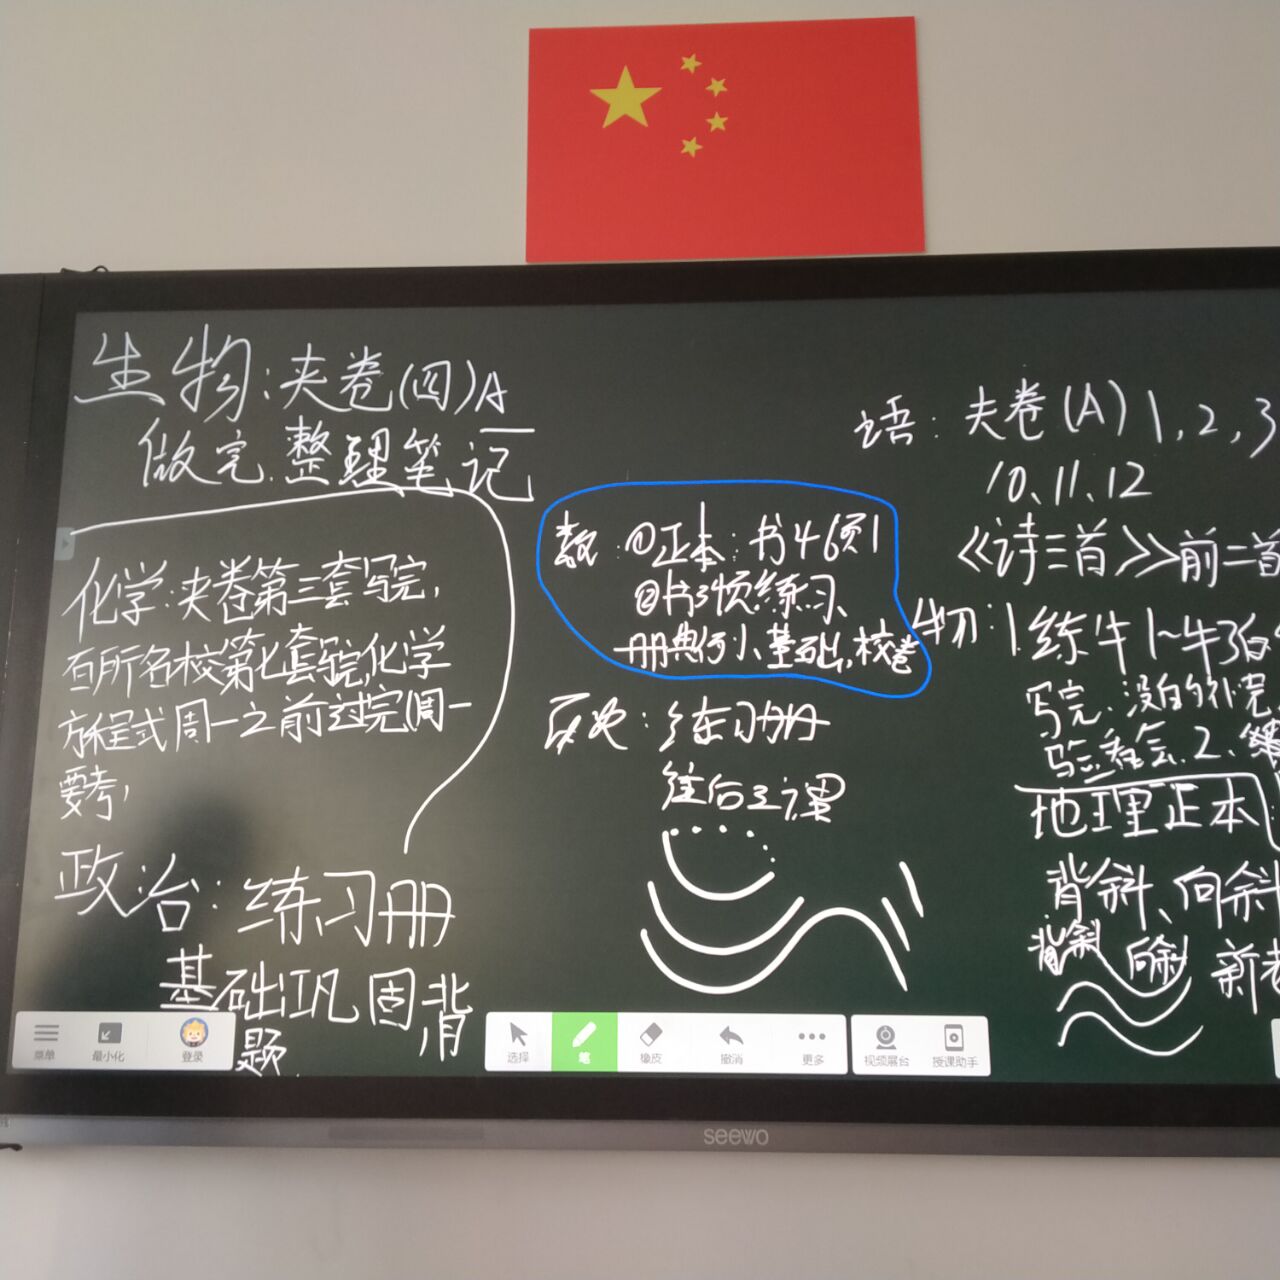 生物:夹卷(四)A
做完.整理笔记
化学:夹卷第三套写完,
百所名校第七套写完,化学
方程式周一之前过完(周一
要考,
政治:练习册
基础巩固背
题.
数:①正本:书46页1
②书3页练习、
册典例1、基础,校卷
历史:练习册
往后三课
语:夹卷(A)1,2,3
10、11、12
《诗三首》前二首
物:1.练牛1~牛3
写完.没白的补完
2、
地理正本
背斜、向斜
背斜 向斜
菜单 最小化 登录
选择 笔 橡皮 撤消 更多
视频展台 授课助手
seewo